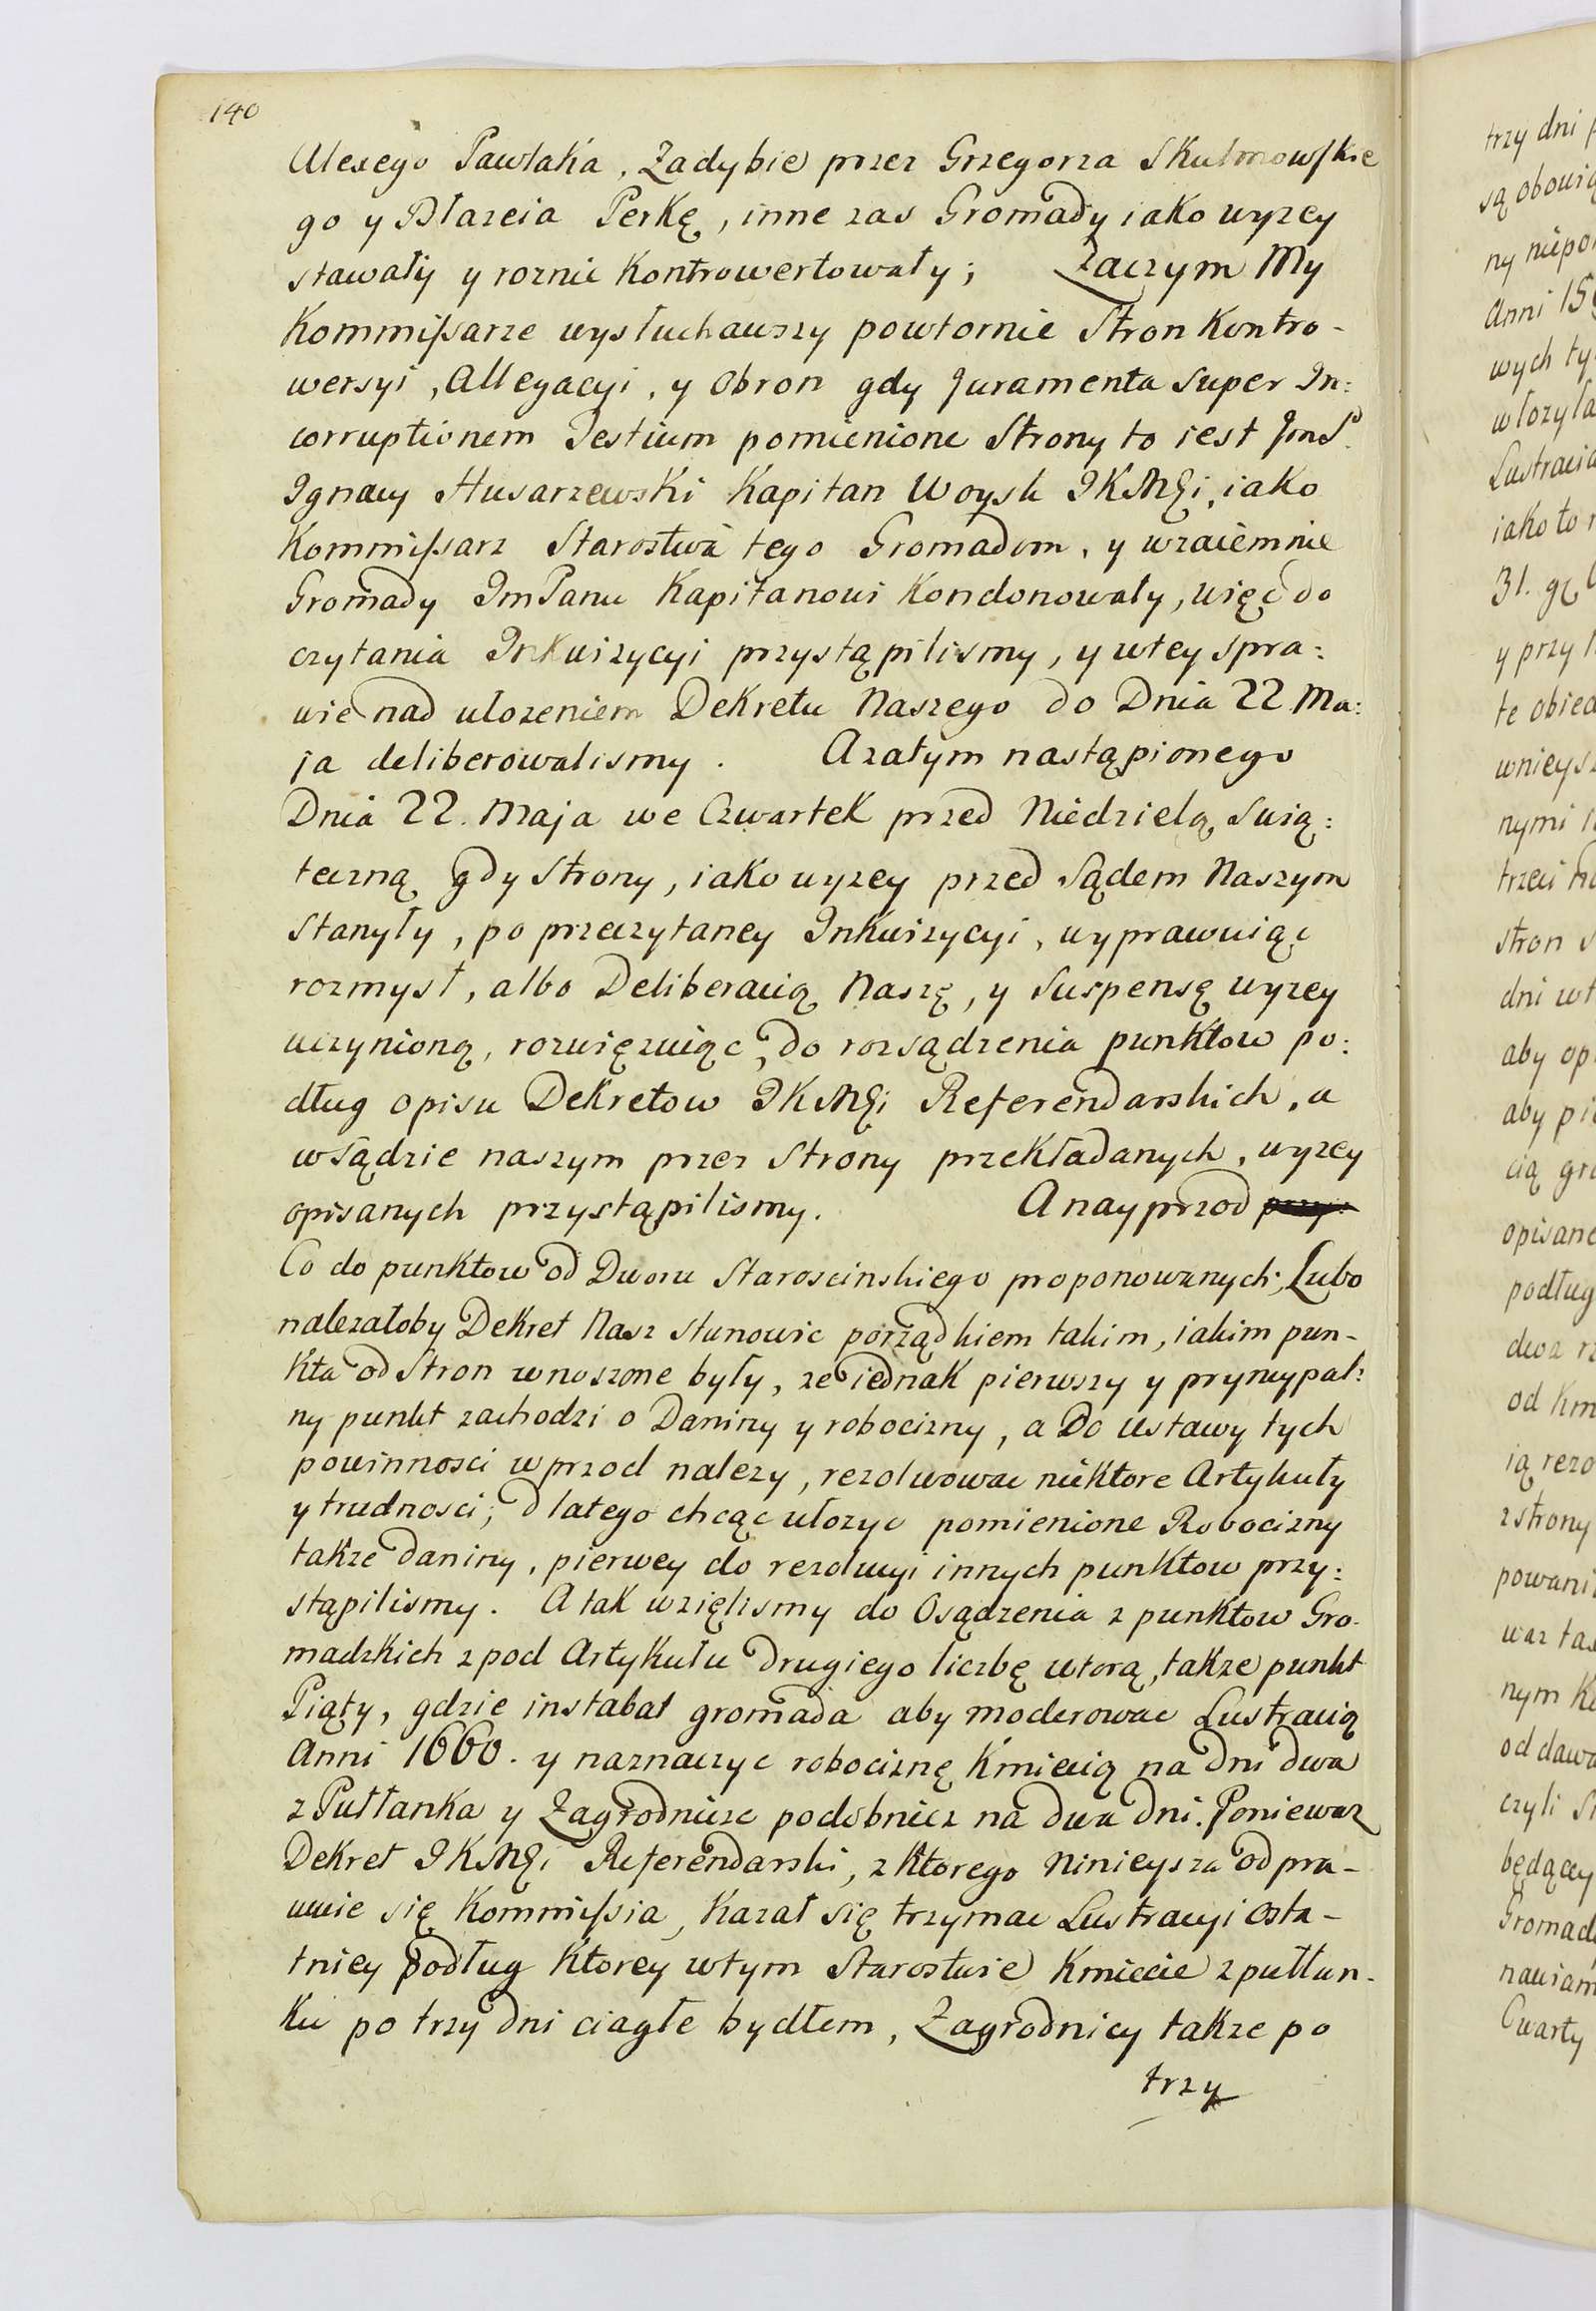 140
Alexego Pawlaka, Zadybie przez Grzegorza Skulmowskie
go y Błazeia Perkę, inne zas Gromady iako wyzey
stawały y roznie Kontrowertowały; Zaczym My
Kommissarze wysłuchawszy powtornie Stron Kontro-
wersyi, Allegacyi, y Obron gdy Juramenta Super In:
corruptionem Testium pomienione Strony to iest JmP.
Ignacy Husarzewski Kapitan Woysk JKMCi, iako
Kommissarz Starostwa tego Gromadom, y wzaiemnie
Gromady ImPanu Kapitanowi Kondonowały, więc do
czytania Inkwizycyi przystąpilismy, y wtey spra:
wie nad ulozeniem Dekretu Naszego do Dnia 22 Ma:
ja deliberowalismy. A zatym nastąpionego
Dnia 22. Maja we Czwartek przed Niedzielą Swią:
teczną gdy Strony, iako wyzey przed Sądem Naszym
Stanyły, po przeczytaney Inkwizycyi, wyprawuiąc
rozmysł, albo Deliberacią Naszę, y Suspensę wyzey
uczynioną, rozwięzuiąc, do rozsądzenia punktow po:
dług opisu Dekretow JKMCi Referendarskich, a
wSądzie naszym przez Strony przekładanych, wyzey
opisanych przystąpilismy. A nayprzod
Co do punktow od Dworu Staroscinskiego proponowanych, Lubo
nalezałoby Dekret Nasz stanowic porządkiem takim, iakim pun-
kta od Stron wnoszone były, ze iednak pierwszy y pryncypal:
ny punkt zachodzi o Daniny y robocizny, a Do Ustawy tych
powinnosci wprzod nalezy, rezolwowac niektore Artykuły
y trudnosci; dlatego chcąc ułozyc pomienione Robocizny
takze daniny, pierwey do rezolucyi innych punktow przy:
stąpilismy. A tak wzięlismy do Osądzenia z punktow Gro-
madzkich zpod Artykułu Drugiego liczbę wtorą, takze punkt
Piąty, gdzie instabat gromada aby moderowac Lustracią
Anni 1660. y naznaczyc robociznę Kmiecią na dni dwa
z Pułłanka y Zagrodnicze podobniez na dwa dni. Poniewaz
Dekret JKMCi Referendarski, z ktorego Ninieysza odpra-
wuie się Kommissia, Kazał się trzymac Lustracyi osta-
tniey podług Ktorey wtym Starostwie Kmiecie z pułłan-
ku po trzy dni ciagłe bydłem, Zagrodnicy takze po
trzy
trzy dni
są obowią
ny niepo
Anni 15
wych ty
włozyła
Lustracia
iako to
31. gr.
y przy
te obied
wnieysz
nymi
trzeci
stron
dni wt
aby op
aby pi
cią gro
opisane
podług
dwa rz
od Km
ią rezo
z strony
powani
waz tak
nym K
od dawn
czyli S
będący
Gromad
nawiam
Cwarty